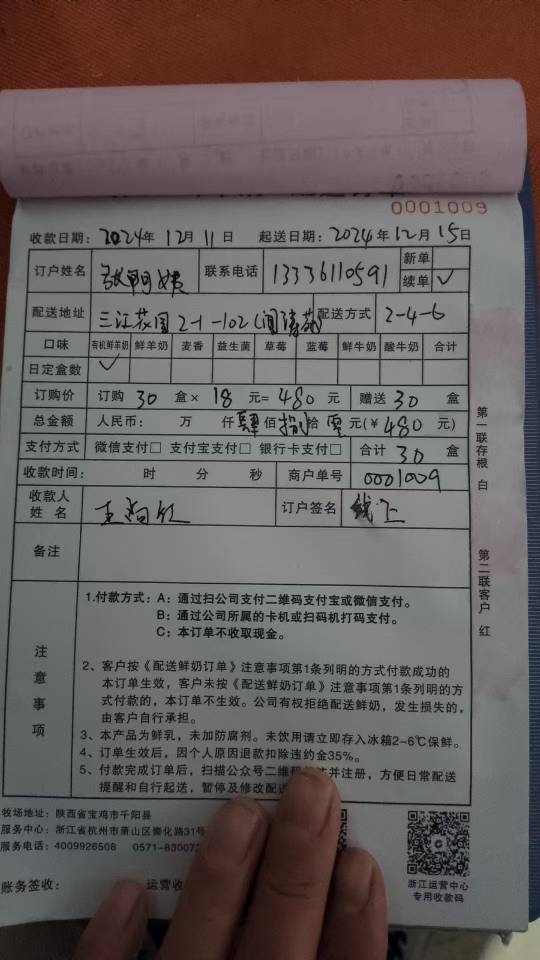 0001009
收款日期：2024年 12月 11日 起送日期：2024年12月15日
订户姓名 张阿姨 联系电话 13336110591 新单
续单 ✓
配送地址 三江花园2-1-102 配送方式 2-4-6
口味 有机鲜羊奶 鲜羊奶 麦香 益生菌 草莓 蓝莓 鲜牛奶 酸牛奶 合计
日定盒数 ✓
订购价 订购 30 盒× 18 元= 480 元 赠送 30 盒
总金额 人民币： 万 仟 肆 佰 捌 拾 零 元(￥480 元)
支付方式 微信支付□ 支付宝支付□ 银行卡支付□ 合计 30 盒
收款时间： 时 分 秒 商户单号 0001009
收款人
姓 名 订户签名 线上
备注
注意事项
1.付款方式：A：通过扫公司支付二维码支付宝或微信支付。
B：通过公司所属的卡机或扫码机打码支付。
C：本订单不收取现金。
2、客户按《配送鲜奶订单》注意事项第1条列明的方式付款成功的
本订单生效，客户未按《配送鲜奶订单》注意事项第1条列明的方
式付款的，本订单不生效。公司有权拒绝配送鲜奶，发生损失的，
由客户自行承担。
3、本产品为鲜乳，未加防腐剂。未饮用请立即存入冰箱2-6℃保鲜。
4、订单生效后，因个人原因退款扣除违约金35%。
5、付款完成订单后，扫描公众号二维码 并注册，方便日常配送
提醒和自行起送，暂停及修改配
第一联存根 白
第二联客户 红
牧场地址：陕西省宝鸡市千阳县
服务中心：浙江省杭州市萧山区膨化路31号
服务电话：4009926508 0571-830072
浙江运营中心
专用收款码
账务签收： 运营收